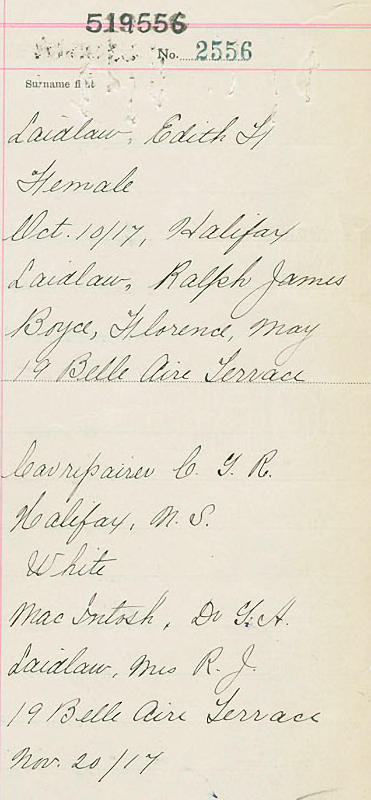 519556
No. 2556
Surname first
Laidlaw, Edith H
Female
Oct. 10/17, Halifax
Laidlaw, Ralph James
Boyce, Florence, May
19 Belle Aire Terrace
Car repairer C. G. R.
Halifax, N. S.
White
MacIntosh, Dr G. H.
Laidlaw, Mrs R. J.
19 Belle Aire Terrace
Nov. 20/17